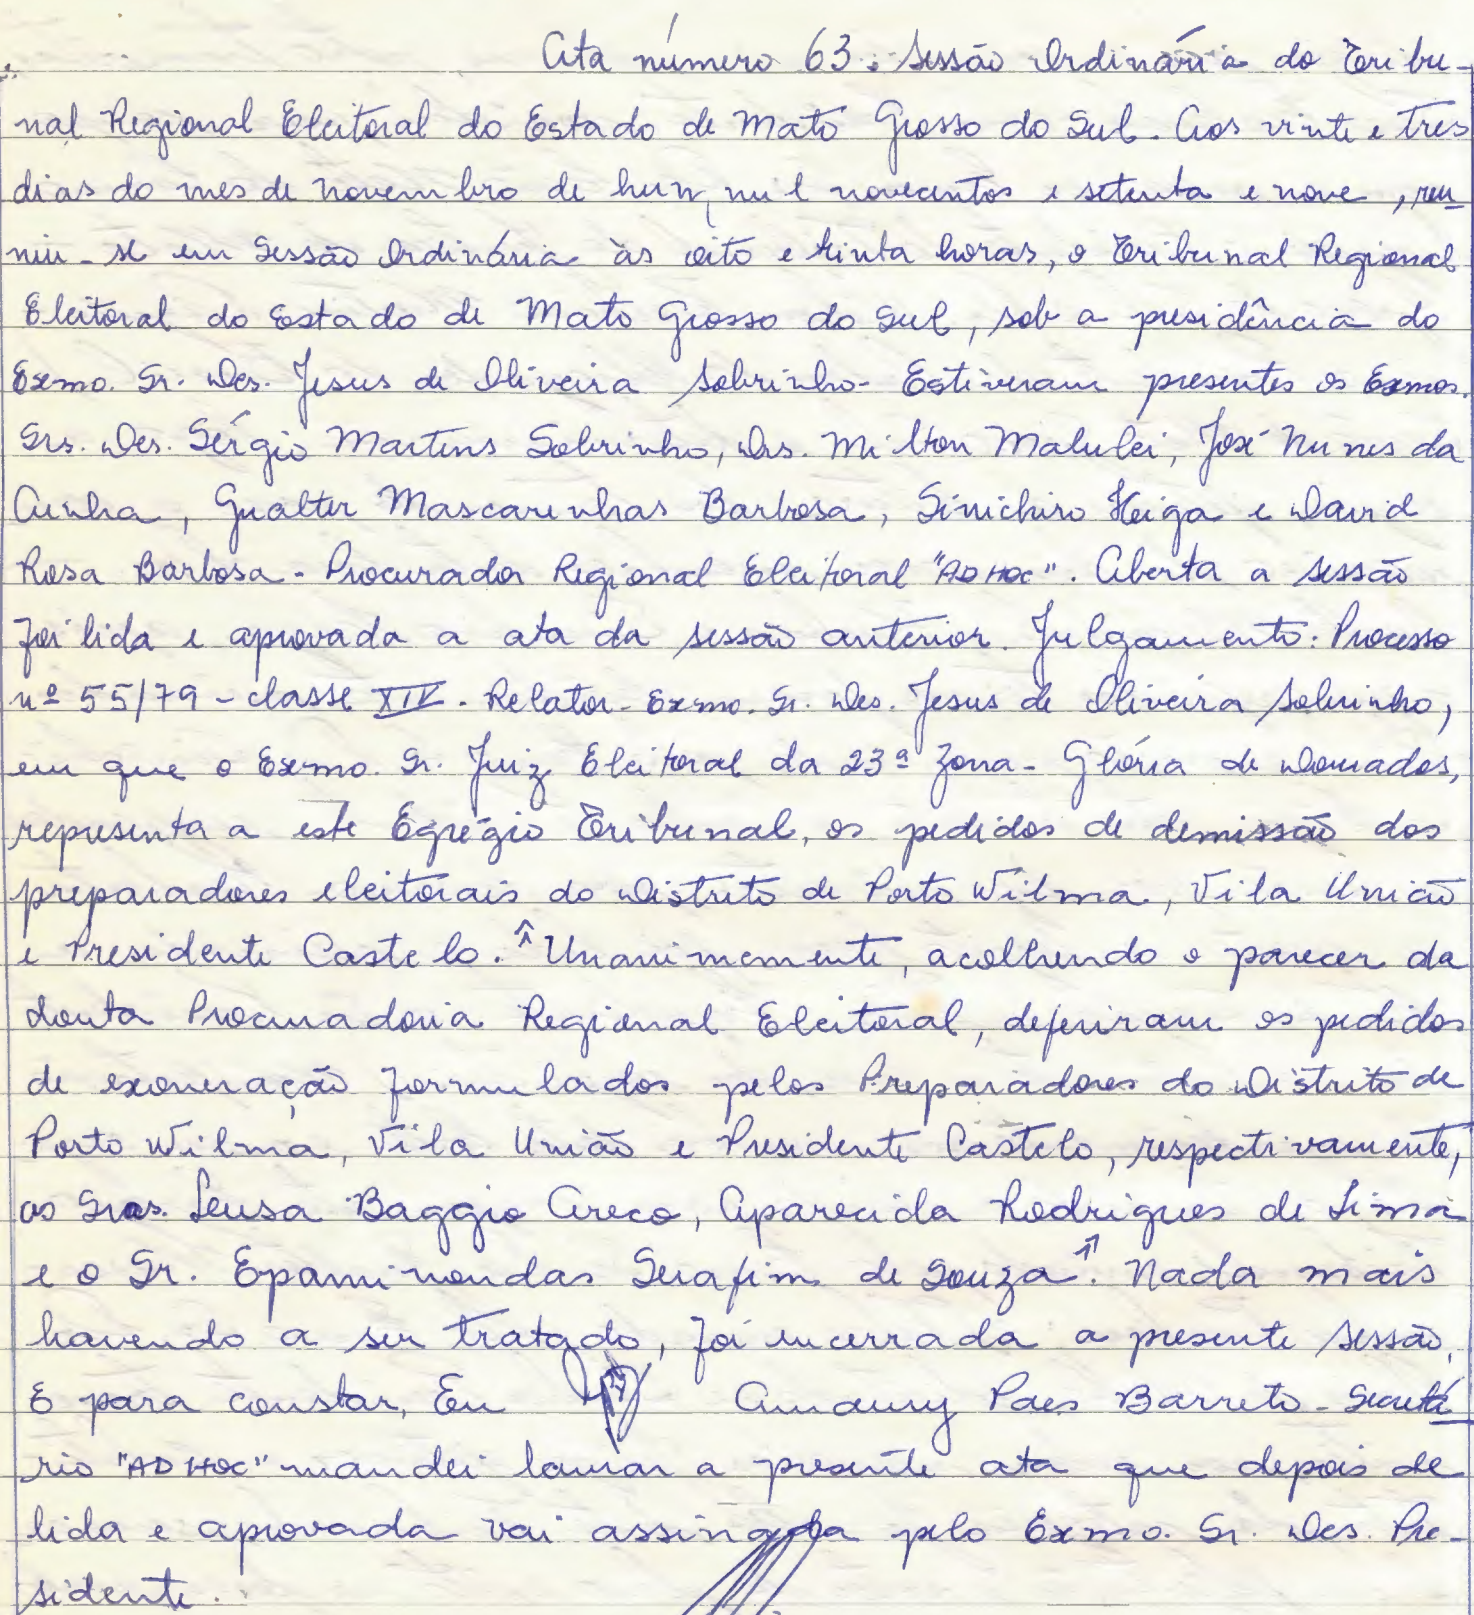 Ata número 63. Sessão Ordinária do Tribu-
nal Regional Eleitoral do Estado de Mato Grosso do Sul. Aos vinte e tres
dias do mes de novembro de hum mil novecentos e setenta e nove, reu
niu-se em Sessão Ordinária às oito e trinta horas, o Tribunal Regional
Eleitoral do Estado de Mato Grosso do Sul, sob a presidência do
Exmo. Sr. Des. Jesus de Oliveira Sobrinho- Estiveram presentes os Exmos.
Srs. Des. Sérgio Martins Sobrinho, Drs. Milton Malulei, José Nunes da
Cunha, Gualter Mascarenhas Barbosa, Sinichiro Heiga e David
Rosa Barbosa- Procurador Regional Eleitoral "AD HOC". Aberta a sessão
foi lida e aprovada a ata da sessão anterior. Julgamento: Processo
nº 55/79 - classe XIV. Relator- Exmo. Sr. Des. Jesus de Oliveira Sobrinho,
em que o Exmo. Sr. Juiz Eleitoral da 23ª Zona- Glória de Dourados,
representa a este Egrégio Tribunal, os pedidos de demissão dos
preparadores eleitorais do Distrito de Porto Wilma, Vila União
e Presidente Castelo. "Unanimemente, acolhendo o parecer da
douta Procuradoria Regional Eleitoral, deferiram os pedidos
de exoneração formulados pelos Preparadores do Distrito de
Porto Wilma, Vila União e Presidente Castelo, respectivamente,
as Sras. Leusa Baggio Areco, Aparecida Rodrigues de Lima
e o Sr. Epaminondas Serafim de Souza". Nada mais
havendo a ser tratado, foi encerrada a presente sessão.
E para constar, Eu Amaury Paes Barreto- Secretá
rio "AD HOC" mandei lavrar a presente ata que depois de
lida e aprovada vai assinada pelo Exmo. Sr. Des. Pre-
sidente.